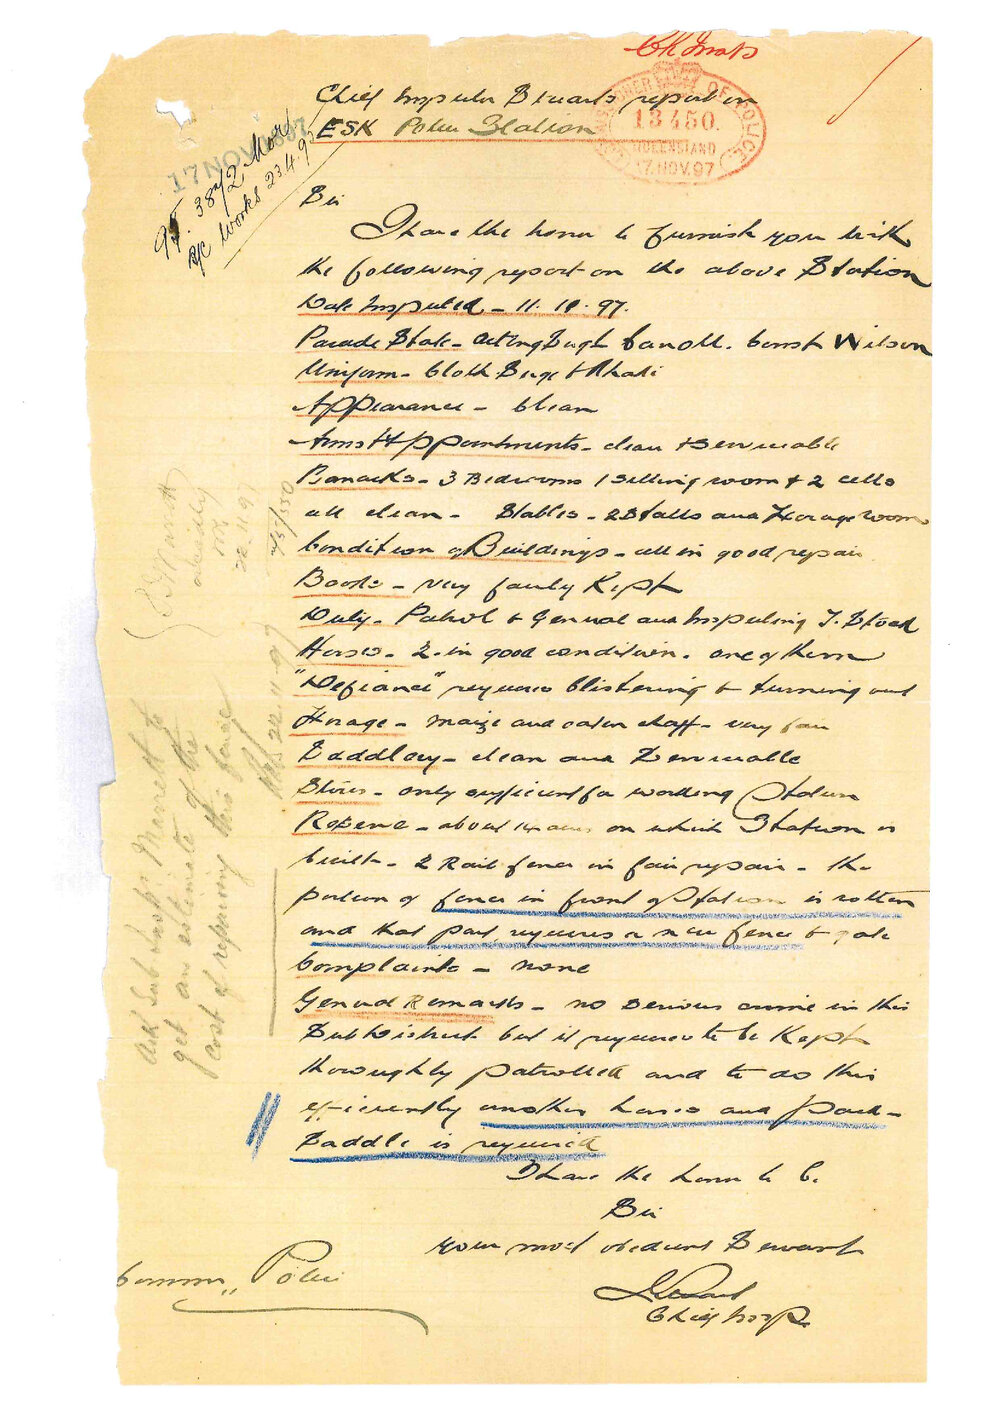 Ch Insp
Chief Inspector Stuart's report on
ESK Police Station
COMMISSIONER OF POLICE
13450.
QUEENSLAND
17.NOV.97
17 NOV 1897
38 1/2 More
Works 23.4.9
Sir
I have the honor to furnish you with
the following report on the above Station
Date Inspected - 11.10.97.
Parade State - Acting Sergt Carroll. Const Wilson
Uniform - Cloth Serge & Khaki
Appearance - Clean
Arms & Appointments - clean & Serviceable
Barracks - 3 Bedrooms 1 Sitting room & 2 cells
all clean - Stables - 2 Stalls and Forage room
Condition of Buildings - all in good repair
Books - very fairly Kept
Duty - Patrol & General and Inspecting I. Stock
Horses - 2 - in good condition. one of them
"Defiance" requires blistering & turning out
Forage - maize and oaten chaff - very fair
Saddlery - clean and Serviceable
Stores - only sufficient for working Station
Reserve - about 14 acres on which Station is
built - 2 Rail fence in fair repair - the
portion of fence in front of Station is rotten
and that part requires a new fence & gate
Complaints - none
General Remarks - no serious crime in this
Sub District but it requires to be Kept
thoroughly patrolled and to do this
efficiently another horse and pack-
Saddle is required
I have the honor to be
Sir
your most obedient Servant
Chief Insp.
Commr. Police
Ask Sub Insp.
get an estimate of the
cost of repairing this fence
22.11.97
already
22.11.97